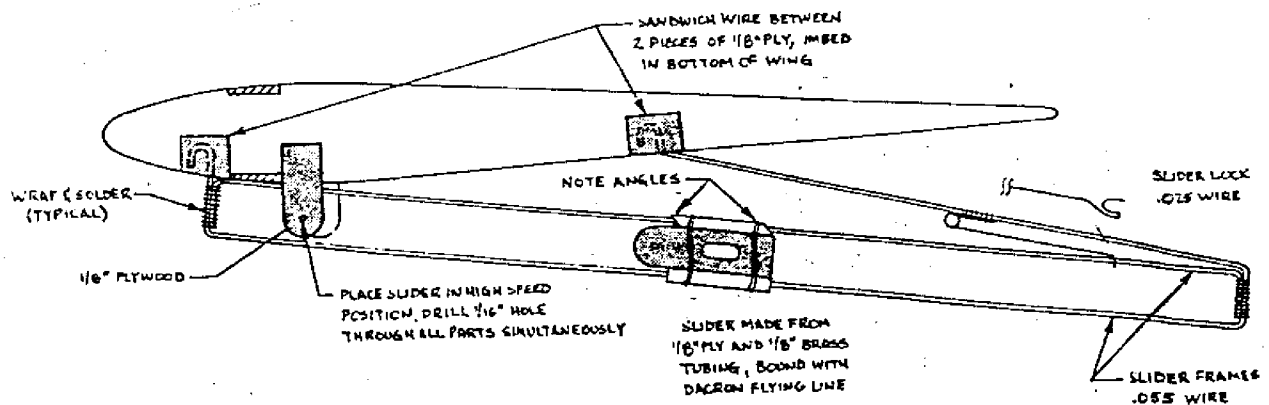 SANDWICH WIRE BETWEEN
2 PIECES OF 1/8" PLY, IMBED
IN BOTTOM OF WING
WRAP & SOLDER
(TYPICAL)
NOTE ANGLES
SLIDER LOCK
.025 WIRE
1/8" PLYWOOD
PLACE SLIDER IN HIGH SPEED
POSITION, DRILL 1/16" HOLE
THROUGH ALL PARTS SIMULTANEOUSLY
SLIDER MADE FROM
1/8" PLY AND 1/8" BRASS
TUBING, BOUND WITH
DACRON FLYING LINE
SLIDER FRAMES
.055 WIRE